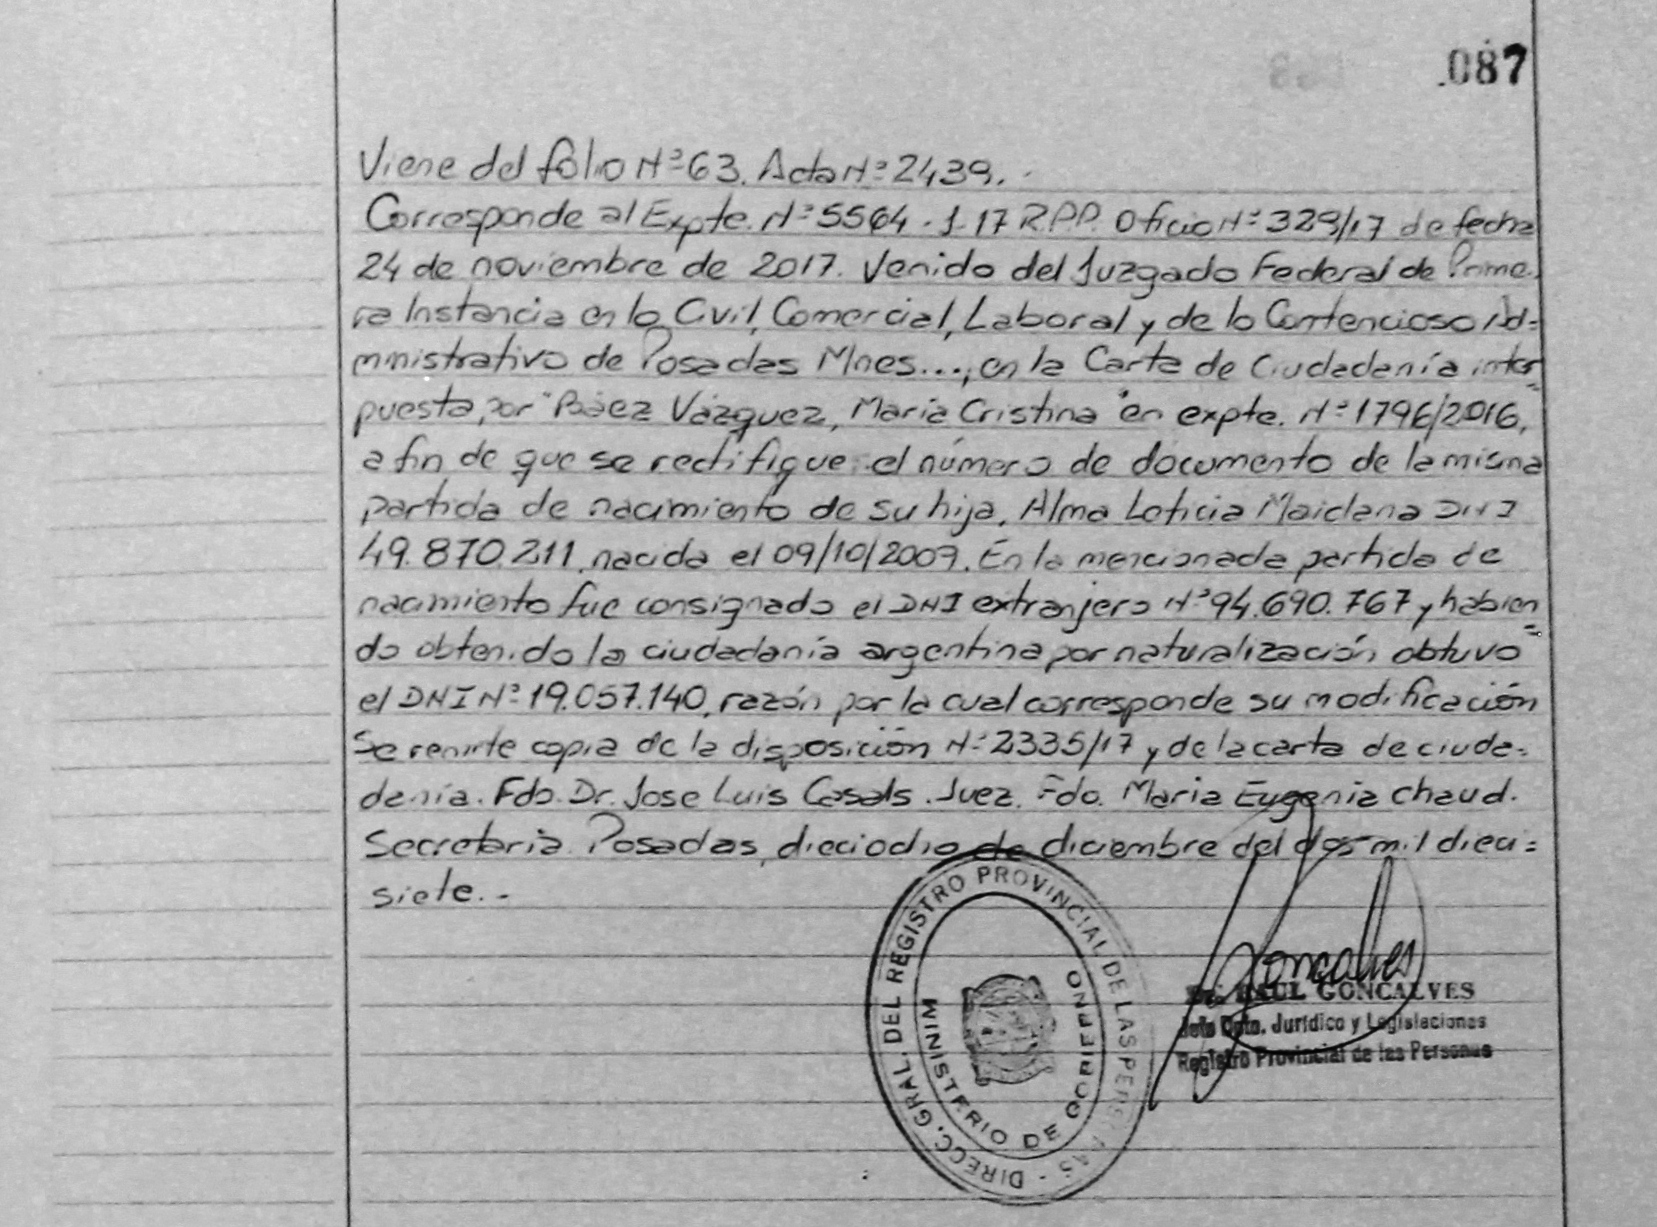 .087
Viene del folio Nº 63. Acta Nº 2439. .
Corresponde al Expte. Nº 5564 - J-17 R.P.P. Oficio Nº 329/17 de fecha
24 de noviembre de 2017. Venido del Juzgado Federal de Prime-
ra Instancia en lo Civil, Comercial, Laboral y de lo Contencioso Ad-
ministrativo de Posadas Mnes..., en la Carta de Ciudadanía inter
puesta, por "Báez Vázquez, María Cristina" en expte. Nº 1796/2016,
a fin de que se rectifique el número de documento de la misma
partida de nacimiento de su hija, Alma Leticia Maidana DNI
49.870.211, nacida el 09/10/2009. En la mencionada partida de
nacimiento fue consignado el DNI extranjero Nº 94.690.767 y habien
do obtenido la ciudadanía argentina por naturalización obtuvo
el DNI Nº 19.057.140, razón por la cual corresponde su modificación
Se remite copia de la disposición Nº 2335/17 y de la carta de ciuda-
danía. Fdo. Dr. Jose Luis Casals. Juez. Fdo. Maria Eugenia Chaud.
Secretaria. Posadas, dieciocho de diciembre del dos mil dieci=
siete. -
DIRECC. GRAL. DEL REGISTRO PROVINCIAL DE LAS PERSONAS -
MINISTERIO DE GOBIERNO
Goncalves
Dr. RAUL GONCALVES
Jefe Dpto. Jurídico y Legislaciones
Registro Provincial de las Personas